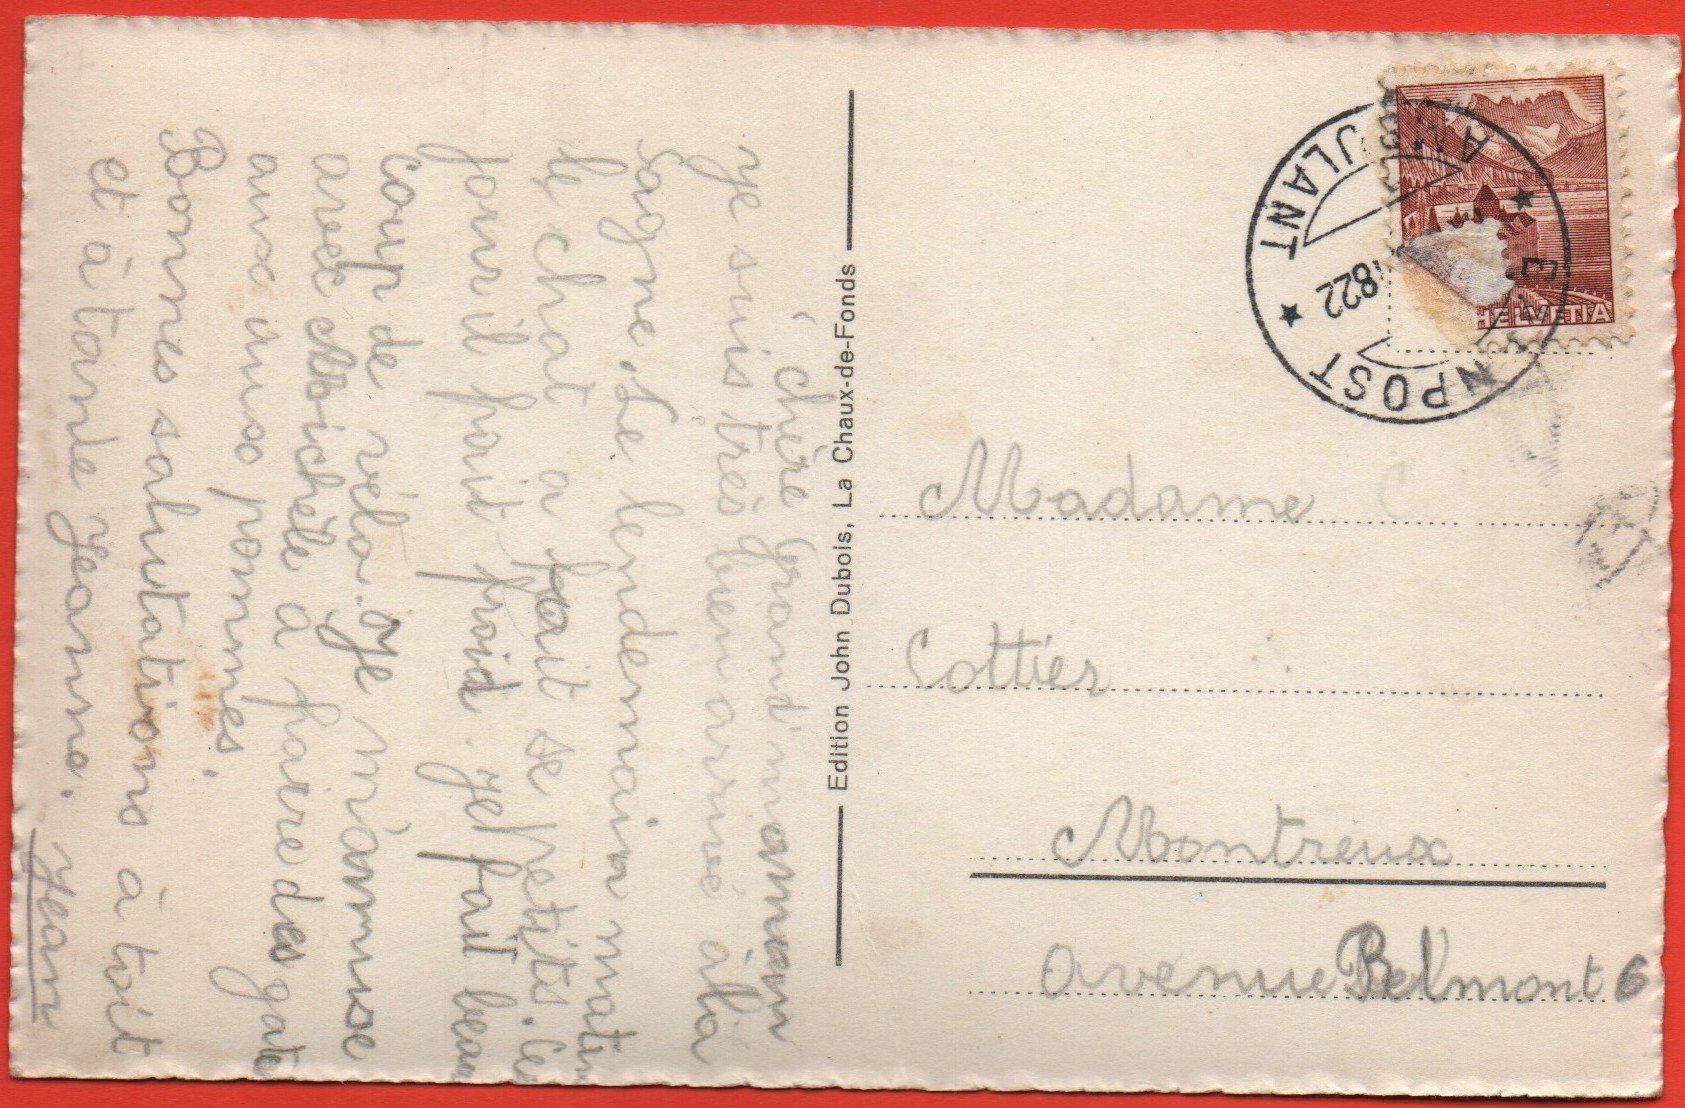 chère grand'mamman
Je suis très bien arrivé à la
Sagne. Le lendemain matin
le chat a fait se petits. Ces
jours il fait froid. Je fait beau
coup de vélo. Je m'ammuse
avec Michèle a faire des gateau
aux aux pommes.
Bonnes salutations à toit
et à tante Jeanne.
Jean
Edition John Dubois, La Chaux-de-Fonds
AMBULANT
822
NPOST
HELVETIA
Madame
Cottier
Montreux
avenue Belmont 6